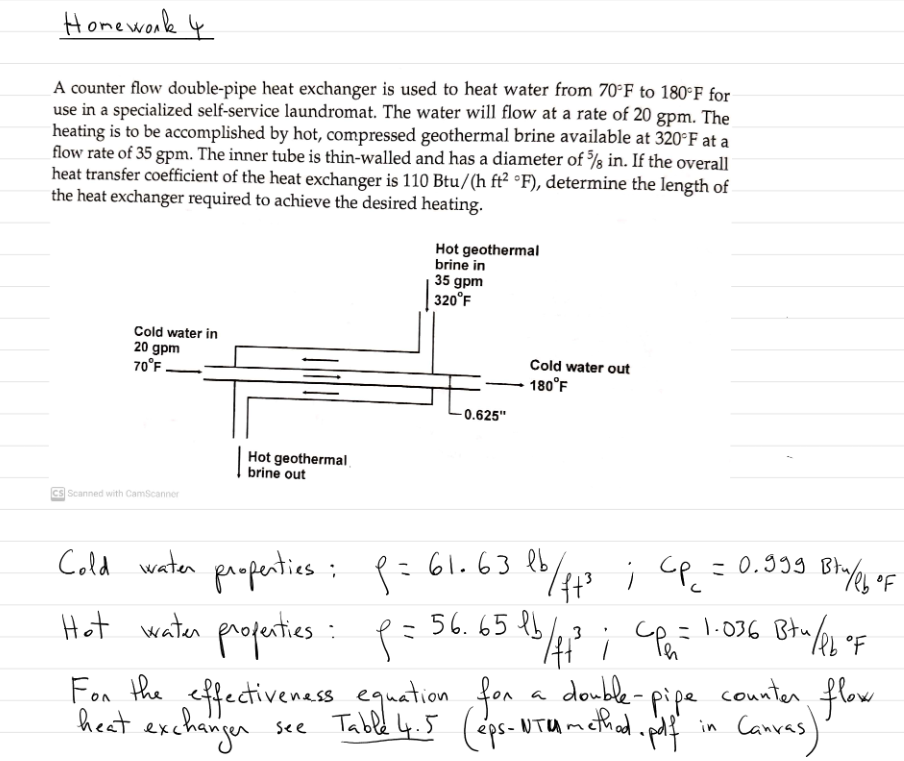 Homework 4
A counter flow double-pipe heat exchanger is used to heat water from 70°F to 180°F for
use in a specialized self-service laundromat. The water will flow at a rate of 20 gpm. The
heating is to be accomplished by hot, compressed geothermal brine available at 320°F at a
flow rate of 35 gpm. The inner tube is thin-walled and has a diameter of ⅝ in. If the overall
heat transfer coefficient of the heat exchanger is 110 Btu/(h ft² °F), determine the length of
the heat exchanger required to achieve the desired heating.
Hot geothermal
brine in
35 gpm
320°F
Cold water in
20 gpm
70°F
Cold water out
180°F
0.625"
Hot geothermal
brine out
CS Scanned with CamScanner
Cold water properties : ρ = 61.63 lb/ft³ ; Cp_c = 0.999 Btu/lb °F
Hot water properties : ρ = 56.65 lb/ft³ ; Cp_h = 1.036 Btu/lb °F
For the effectiveness equation for a double-pipe counter flow
heat exchanger see Table 4.5 (eps-NTU method.pdf in Canvas)